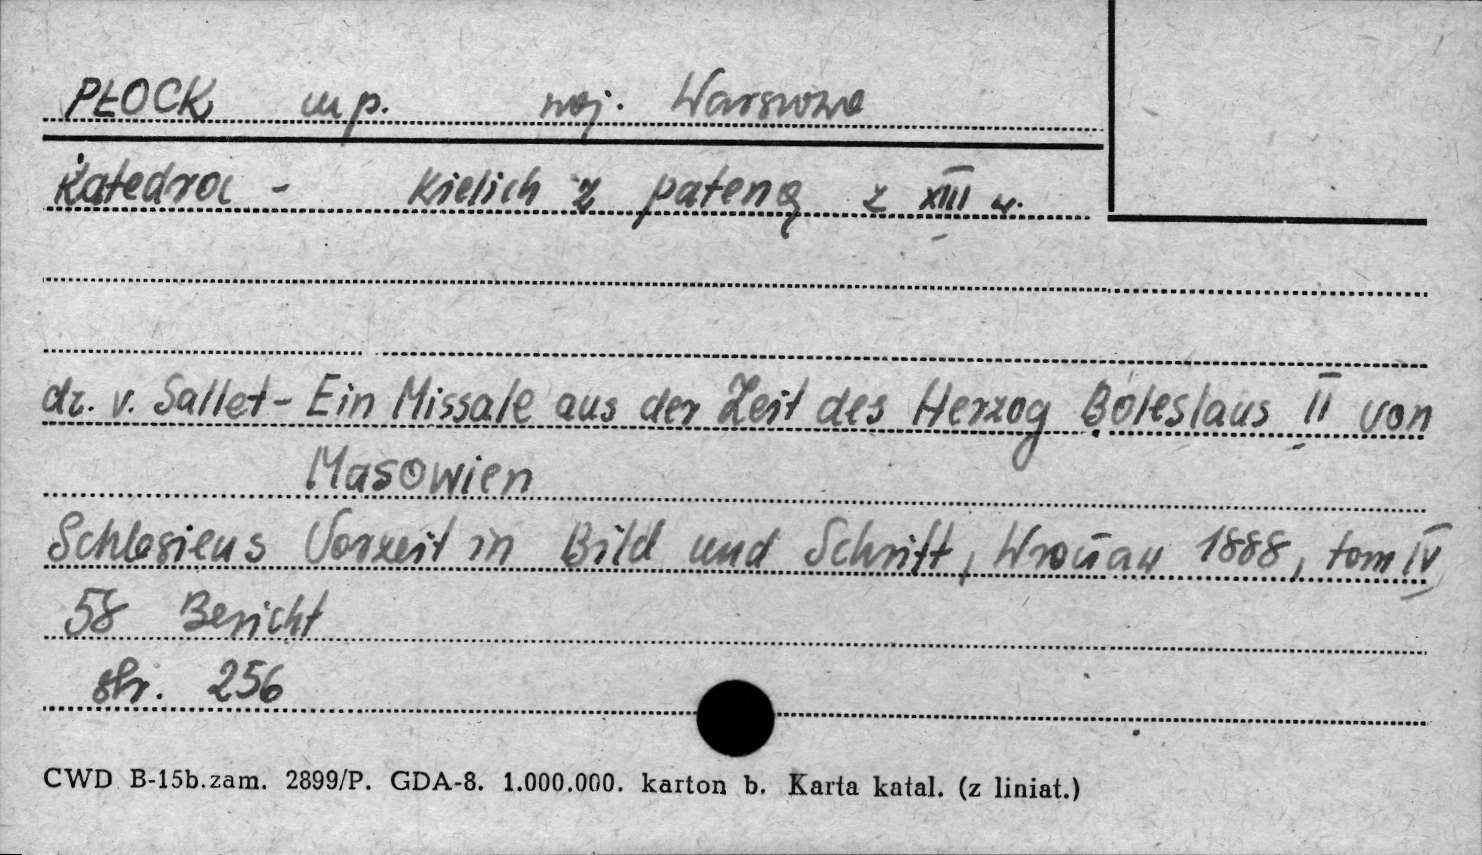 PŁOCK m p. woj. Warszowa
Katedra - kielich z pateną z XIII w.
dr. v. Sallet - Ein Missale aus der Zeit des Herzog Boleslaus II von
Masowien
Schlesiens Vorzeit in Bild und Schrift, Wrocław 1888, tom IV
58 Bericht
str. 256
CWD B-15b.zam. 2899/P. GDA-8. 1.000.000. karton b. Karta katal. (z liniat.)